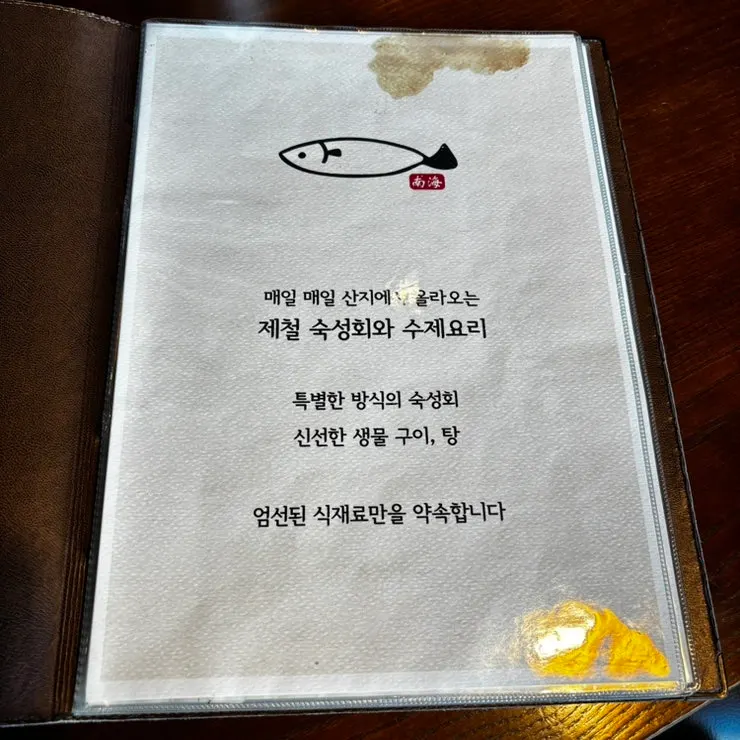 南海
매일 매일 산지에 올라오는
제철 숙성회와 수제요리
특별한 방식의 숙성회
신선한 생물 구이, 탕
엄선된 식재료만을 약속합니다